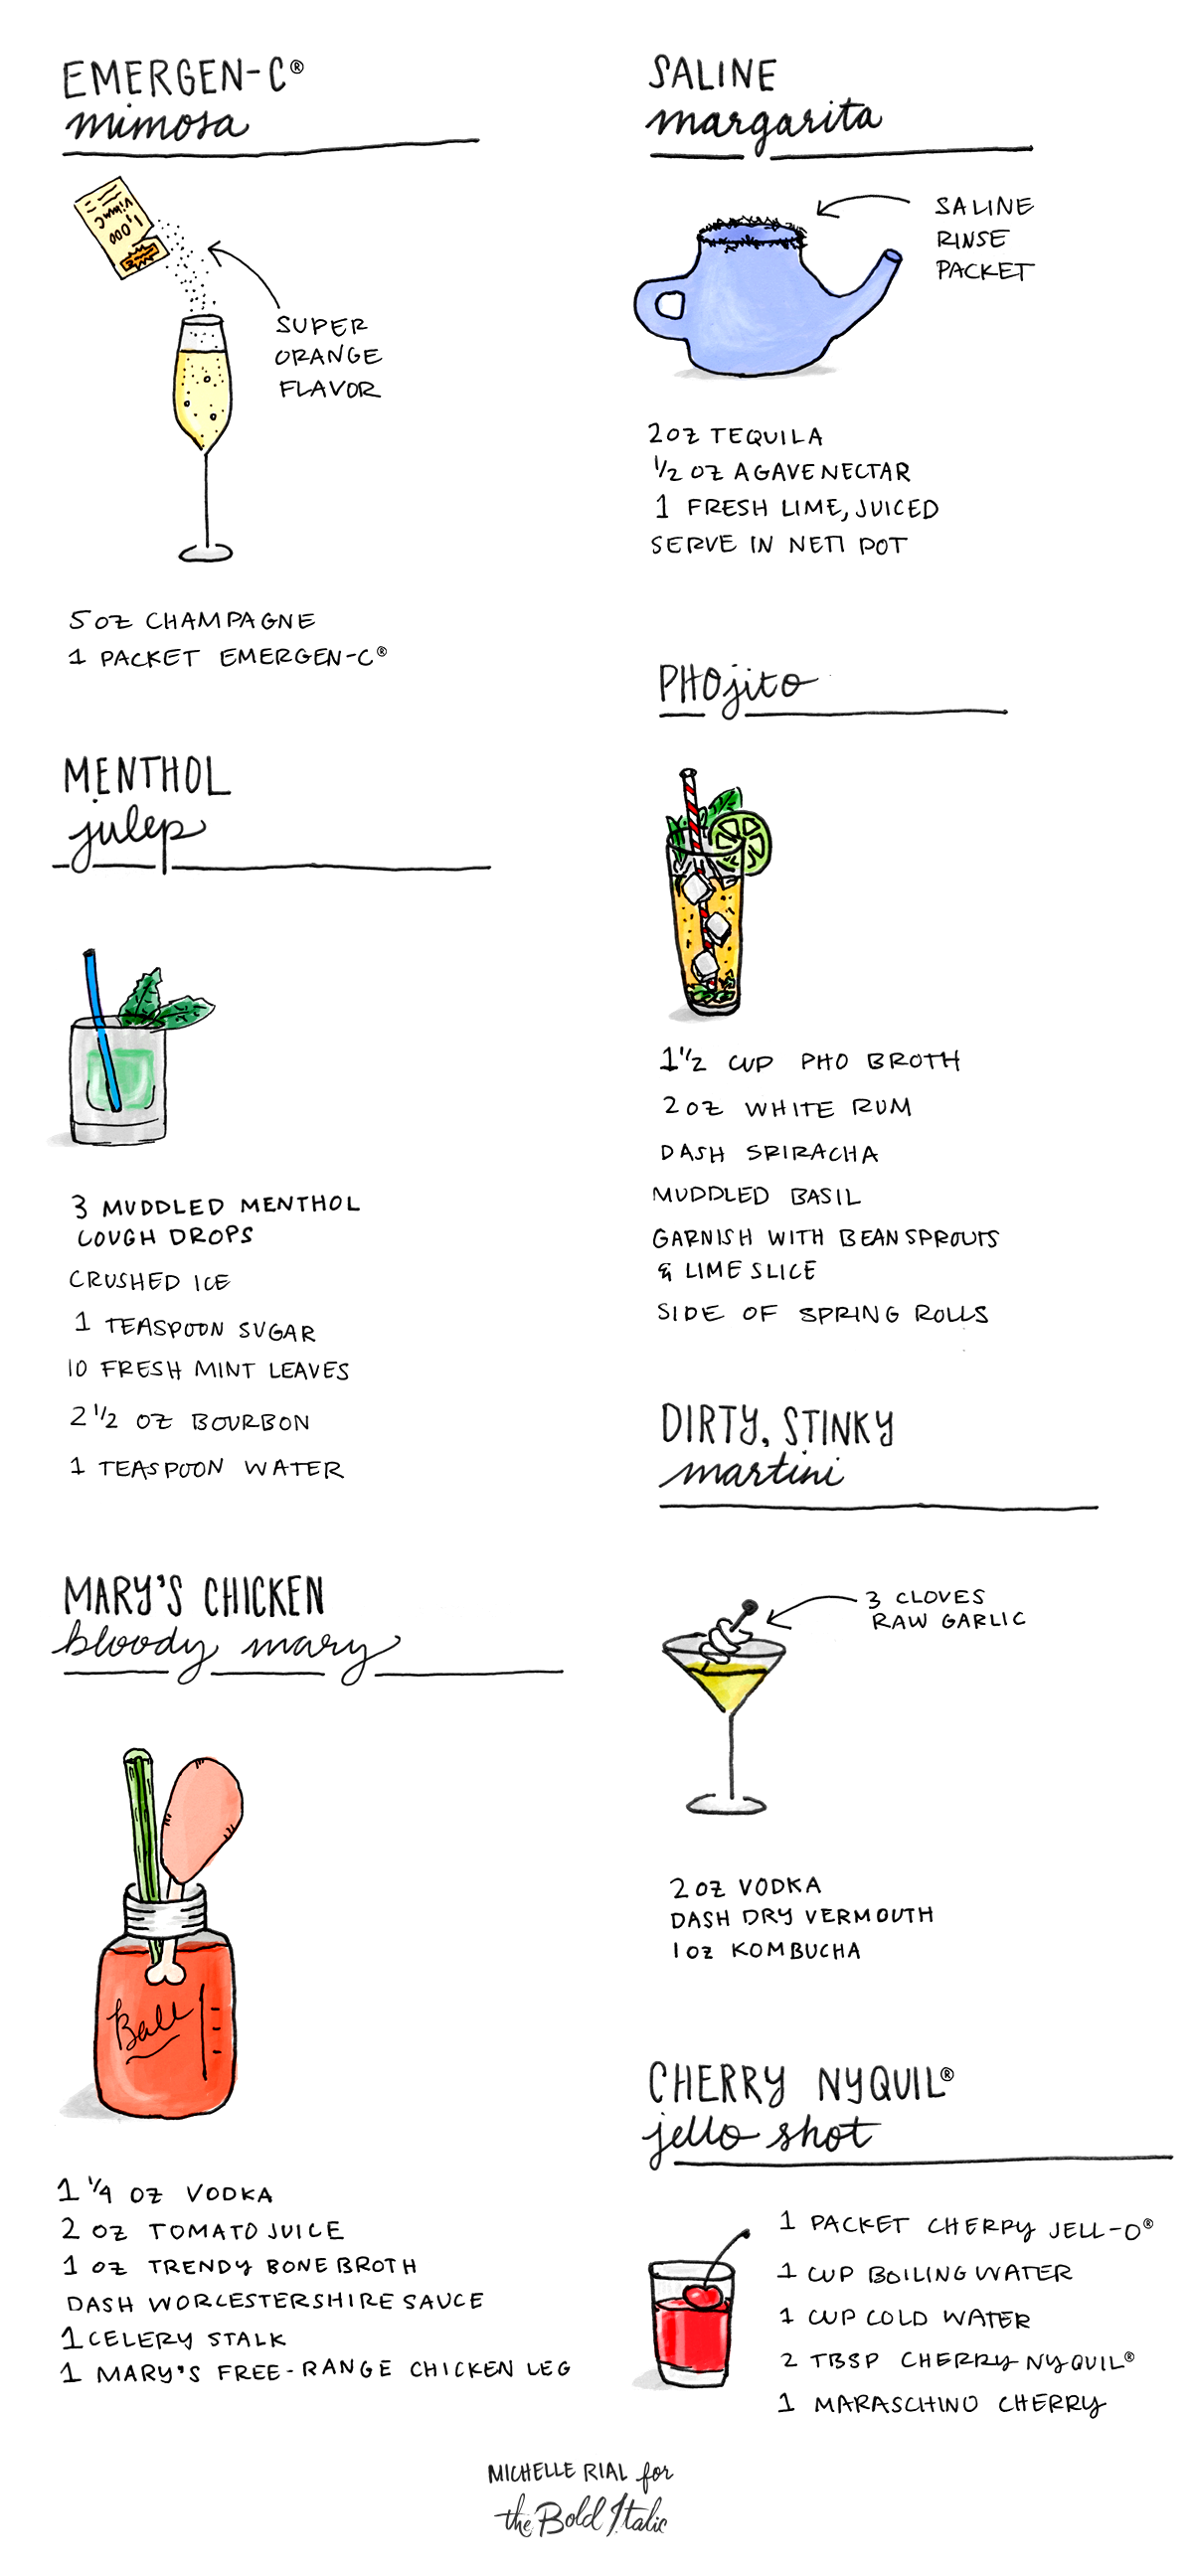 EMERGEN-C®
mimosa
1,000
SUPER
ORANGE
FLAVOR
5 OZ CHAMPAGNE
1 PACKET EMERGEN-C®
MENTHOL
julep
3 MUDDLED MENTHOL
COUGH DROPS
CRUSHED ICE
1 TEASPOON SUGAR
10 FRESH MINT LEAVES
2 1/2 OZ BOURBON
1 TEASPOON WATER
MARY'S CHICKEN
bloody mary
Ball
1 1/4 OZ VODKA
2 OZ TOMATO JUICE
1 OZ TRENDY BONE BROTH
DASH WORCESTERSHIRE SAUCE
1 CELERY STALK
1 MARY'S FREE-RANGE CHICKEN LEG
SALINE
margarita
SALINE
RINSE
PACKET
2 OZ TEQUILA
1/2 OZ AGAVE NECTAR
1 FRESH LIME, JUICED
SERVE IN NETI POT
PHOjito
1 1/2 CUP PHO BROTH
2 OZ WHITE RUM
DASH SRIRACHA
MUDDLED BASIL
GARNISH WITH BEAN SPROUTS
& LIME SLICE
SIDE OF SPRING ROLLS
DIRTY, STINKY
martini
3 CLOVES
RAW GARLIC
2 OZ VODKA
DASH DRY VERMOUTH
1 OZ KOMBUCHA
CHERRY NYQUIL®
jello shot
1 PACKET CHERRY JELL-O®
1 CUP BOILING WATER
1 CUP COLD WATER
2 TBSP CHERRY NYQUIL®
1 MARASCHINO CHERRY
MICHELLE RIAL for
the Bold Italic